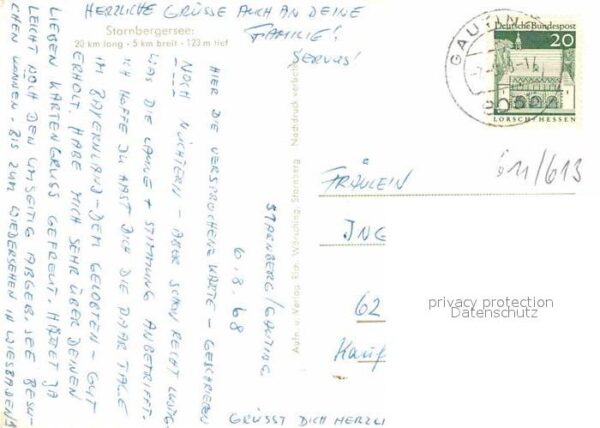 HERZLICHE GRÜSSE AUCH AN DEINE
FAMILIE!
SERVUS!
Starnbergersee:
20 km long - 5 km breit - 123 m tief
STARNBERG/GAUTING
6.8.68
HIER DIE VERSPROCHENE KARTE - GESCHRIEBEN
NOCH NÜCHTERN - ABER SCHON RECHT LUSTIG.
WAS DIE LAUNE + STIMMUNG ANBETRIFFT.
ICH HOFFE DU HAST DICH DIE PAAR TAGE
IM BAYERNLAND - DEM GELOBTEN - GUT
ERHOLT. HABE MICH SEHR ÜBER DEINEN
LIEBEN KARTENGRUSS GEFREUT. HÄTTET JA
LEICHT NOCH DEN UMSEITIG ABGEB. SEE BESU-
CHEN KÖNNEN - BIS ZUM WIEDERSEHEN IN WIESBADEN!
GRÜSST DICH HERZLI
Nachdruck verboten
Aufn. u. Verlag
Starnberg
Deutsche Bundespost
20
LORSCH/HESSEN
GAUTING
ü11/613
FRÄULEIN
ING
62
Kauf
privacy protection
Datenschutz